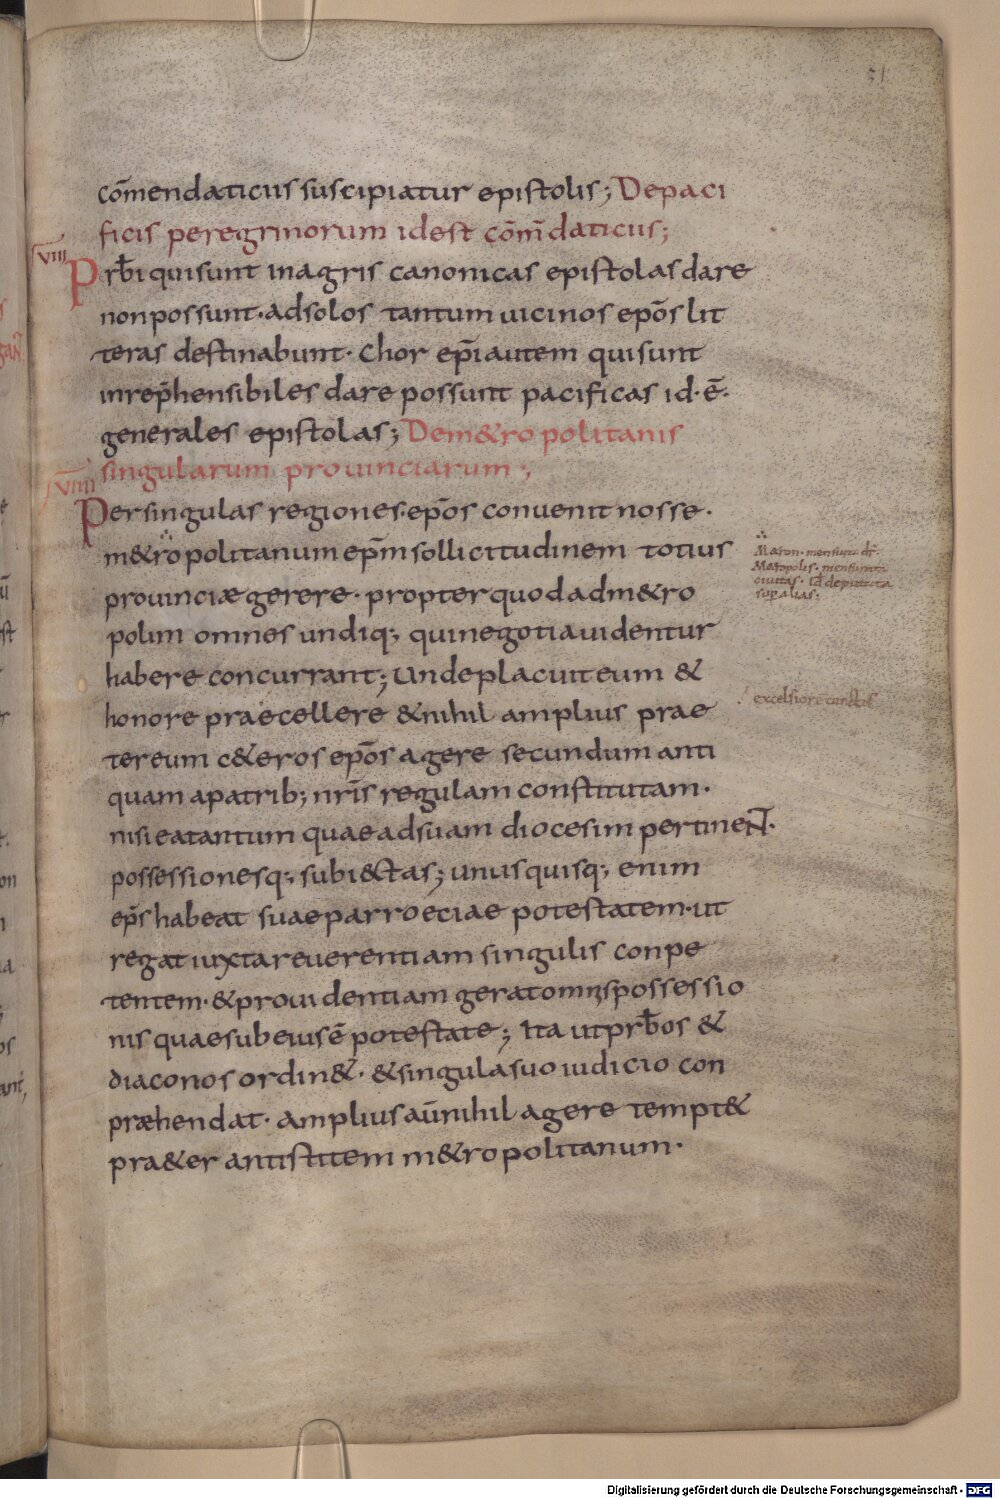 51
cōmendaticiis suscipiatur epistolis; De paci
ficis peregrinorum id est cōm̄daticiis;
VIII
Prb̄i qui sunt in agris canonicas epistolas dare
non possunt· ad solos tantum uicinos ep̄os lit
teras destinabunt· Chor ep̄i autem qui sunt
inrep̄hensibiles dare possunt pacificas id·ē·
generales epistolas; De m&ropolitanis
singularum prouinciarum;
VIIII
Per singulas regiones ep̄os conuenit nosse·
m&ropolitanum ep̄m sollicitudinem totius
prouinciæ gerere· propter quod ad m&ro
polim omnes undiq; qui negotia uidentur
habere concurrant; Unde placuit eum &
honore praecellere & nihil amplius prae
ter eum c&eros ep̄os agere secundum anti
quam a patrib; nr̄is regulam constitutam·
nisi ea tantum quae ad suam diocesim pertineN̄T·
possessionesq; subi&ctas; unusquisq; enim
ep̄s habeat suae parroeciae potestatem· ut
regat iuxta reuerentiam singulis conpe
tentem· & prouidentiam gerat omnis possessio
nis quae sub eius ē potestate; Ita ut prb̄os &
diaconos ordin&· & singula suo iudicio con
præhendat· amplius aū nihil agere tempt&
pra&er antistitem m&ropolitanum·
M&ron· mensura dr̄·
M&ropolis· mensurata
ciuitas· id deputata
sup alias;
excelsiore
Digitalisierung gefördert durch die Deutsche Forschungsgemeinschaft - DFG